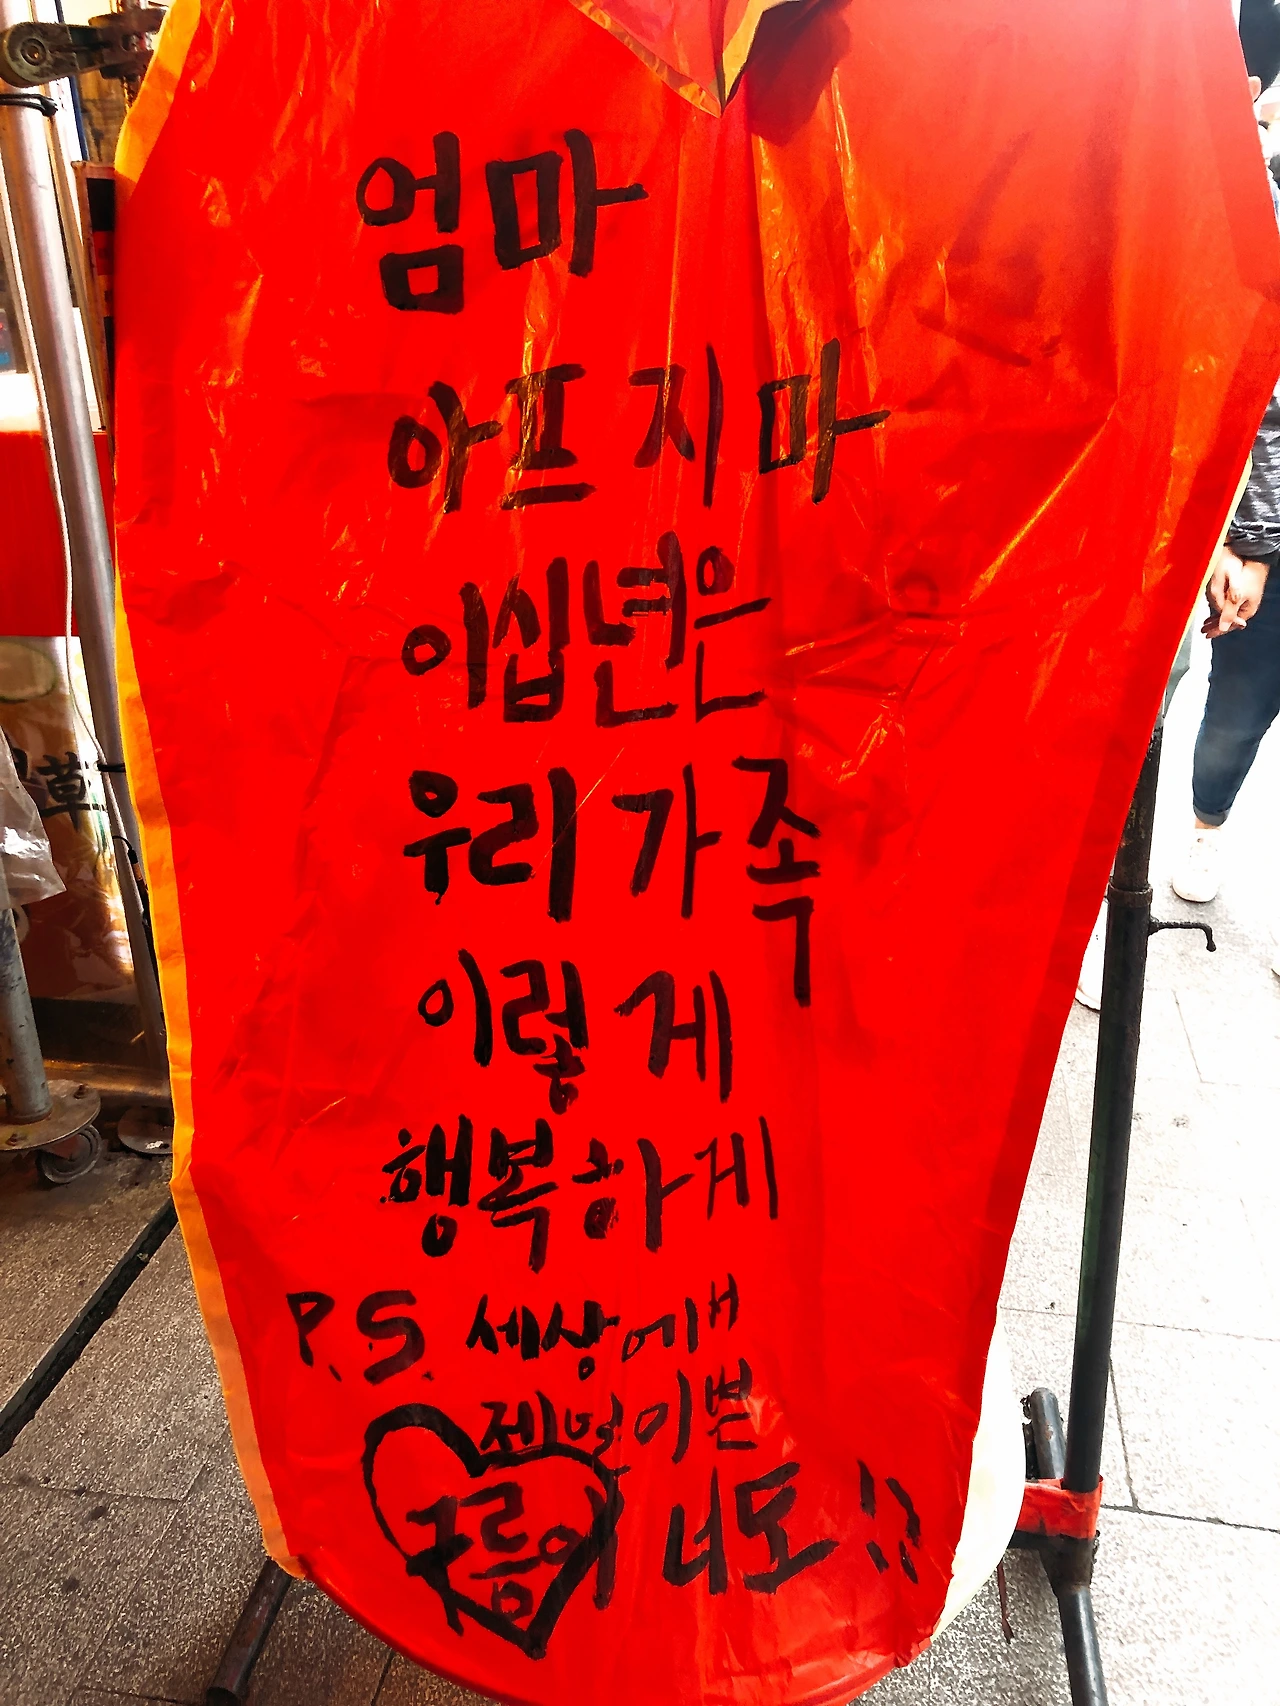 엄마
아프지마
이십년은
우리가족
이렇게
행복하게
P.S. 세상에서
젤 이쁜
구름이 너도!!
草